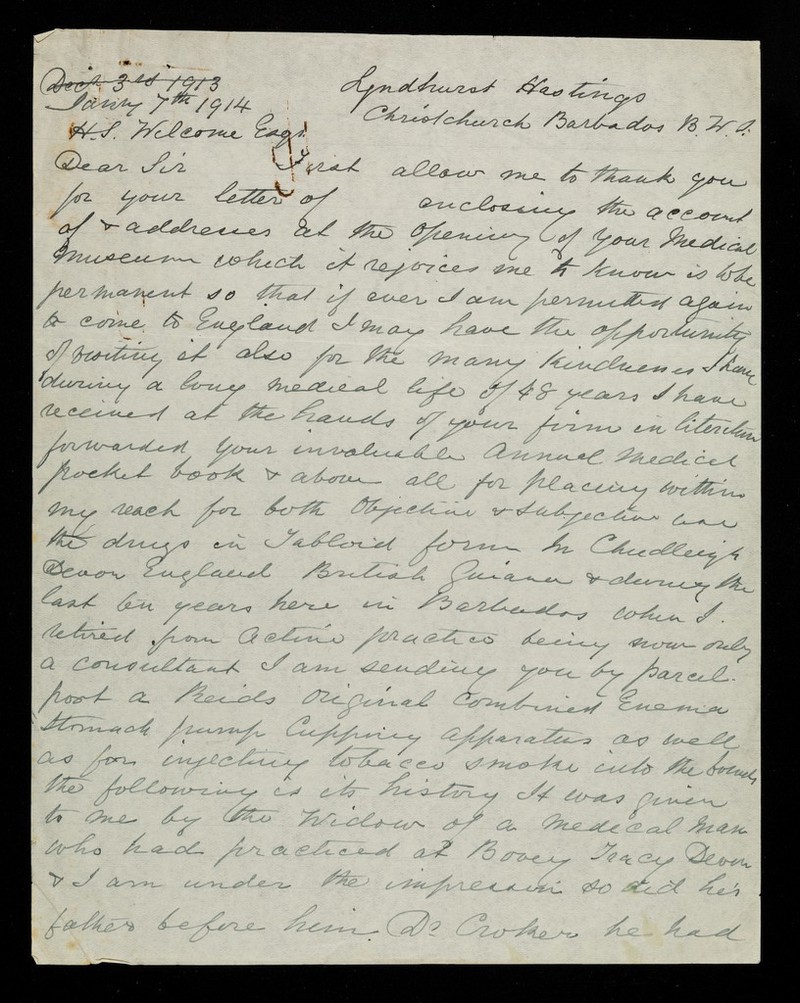 Decr 3rd 1913
Janry 7th 1914
Lyndhurst Hastings
Christchurch Barbados B.W.I.
H.S. Welcome Esqr.
Dear Sir First allow me to thank you
for your letter of enclosing the account
of & addresses at the opening of your Medical
Museum which it rejoices me to know is to be
permanent so that if ever I am permitted again
to come to England I may have the opportunity
of visiting it also for the many kindnesses I have
during a long medical life of 48 years I have
received at the hands of your firm in literature
forwarded your invaluable Annual Medical
pocket book & above all for placing within
my reach for both Objective & Subjective use
the drugs in Tabloid form In Chudleigh
Devon England British Guiana & during the
last ten years here in Barbados when I
retired from active practice being now only
a consultant I am sending you by parcel
post a Reids original Combined Enema
Stomach pump Cupping apparatus as well
as for injecting tobacco smoke into the bowels
the following is its history It was given
to me by the Widow of a medical man
who had practiced at Bovey Tracy Devon
& I am under the impression so did his
father before him. Dr Croker he had